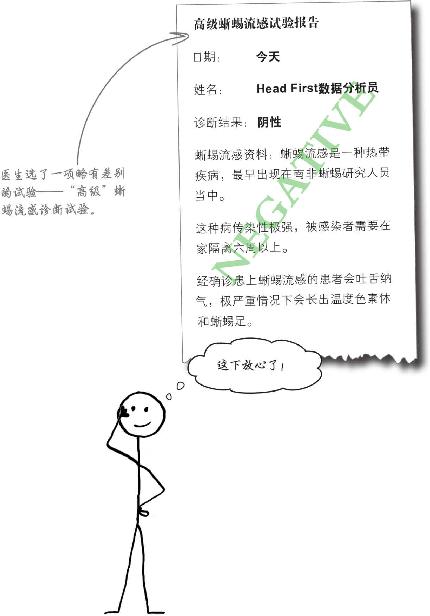 高级蜥蜴流感试验报告
日期： 今天
姓名： Head First数据分析员
诊断结果： 阴性
蜥蜴流感资料：蜥蜴流感是一种热带
疾病，最早出现在南非蜥蜴研究人员
当中。
这种病传染性极强，被感染者需要在
家隔离六周以上。
经确诊患上蜥蜴流感的患者会吐舌纳
气，极严重情况下会长出温度色素体
和蜥蜴足。
NEGATIVE
医生选了一项略有差别
的试验——“高级”蜥
蜴流感诊断试验。
这下放心了！